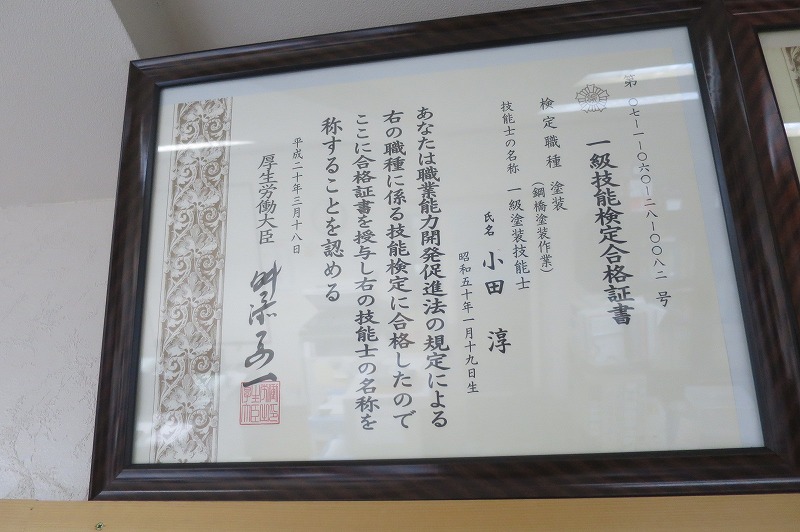 第〇七-一-〇六〇-二八-〇〇八二号
一級技能検定合格証書
検定職種 塗装
(鋼橋塗装作業)
技能士の名称 一級塗装技能士
氏名 小田 淳
昭和五十年一月十九日生
あなたは職業能力開発促進法の規定による
右の職種に係る技能検定に合格したので
ここに合格証書を授与し右の技能士の名称を
称することを認める
平成二十年三月十八日
厚生労働大臣
舛添要一